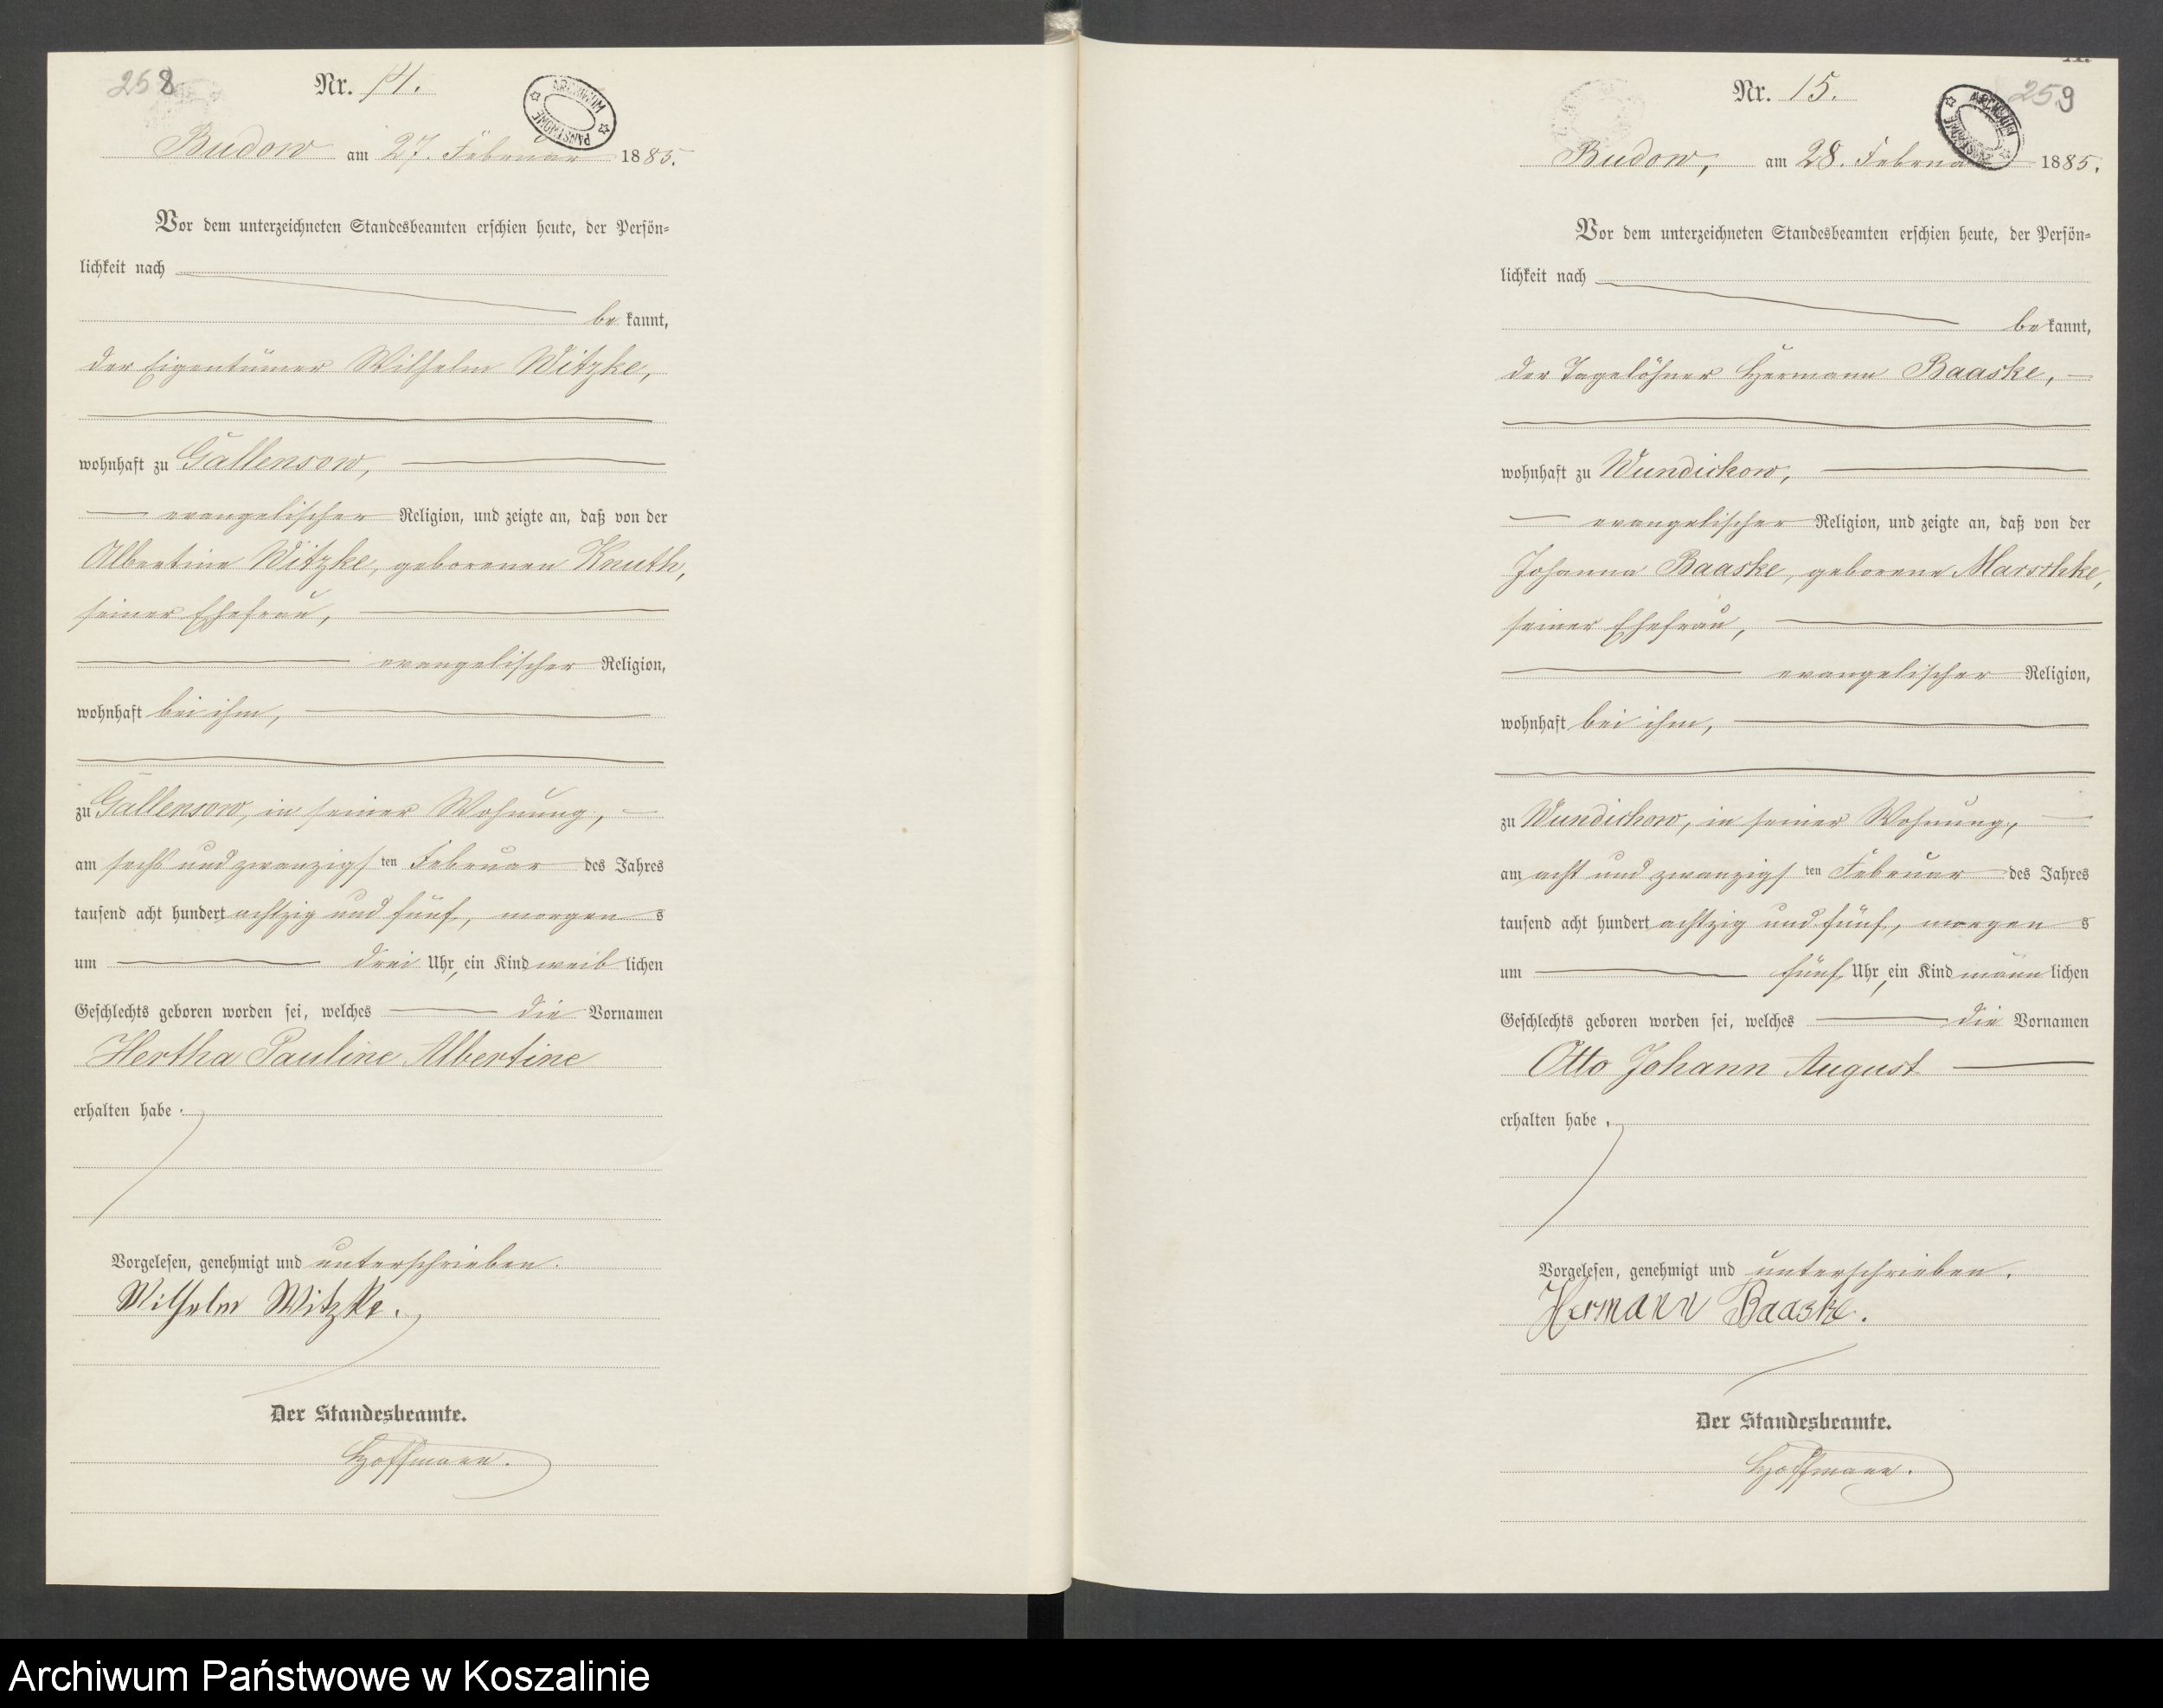 258
Nr. 14.
ARCHIWUM PAŃSTWOWE
Budow am 27. Februar 1885.
Vor dem unterzeichneten Standesbeamten erschien heute, der Persön-
lichkeit nach
be kannt,
der Eigentümer Wilhelm Witzke,
wohnhaft zu Gallensow,
evangelischer Religion, und zeigte an, daß von der
Albertine Witzke, geborenen Knuth,
seiner Ehefrau,
evangelischer Religion,
wohnhaft bei ihm,
zu Gallensow, in seiner Wohnung,
am sechs und zwanzigs ten Februar des Jahres
tausend acht hundert achtzig und fünf, morgen s
um drei Uhr, ein Kind weib lichen
Geschlechts geboren worden sei, welches die Vornamen
Hertha Pauline Albertine
erhalten habe.
Vorgelesen, genehmigt und unterschrieben.
Wilhelm Witzke.
Der Standesbeamte.
Hoffmann.
259
Nr. 15.
ARCHIWUM PAŃSTWOWE
Budow, am 28. Februar 1885.
Vor dem unterzeichneten Standesbeamten erschien heute, der Persön-
lichkeit nach
be kannt,
der Tagelöhner Hermann Baaske,
wohnhaft zu Wundichow,
evangelischer Religion, und zeigte an, daß von der
Johanna Baaske, geborene Marschke,
seiner Ehefrau,
evangelischer Religion,
wohnhaft bei ihm,
zu Wundichow, in seiner Wohnung,
am acht und zwanzigs ten Februar des Jahres
tausend acht hundert achtzig und fünf, morgen s
um fünf Uhr, ein Kind männ lichen
Geschlechts geboren worden sei, welches die Vornamen
Otto Johann August
erhalten habe.
Vorgelesen, genehmigt und unterschrieben.
Hermann Baaske.
Der Standesbeamte.
Hoffmann.
Archiwum Państwowe w Koszalinie